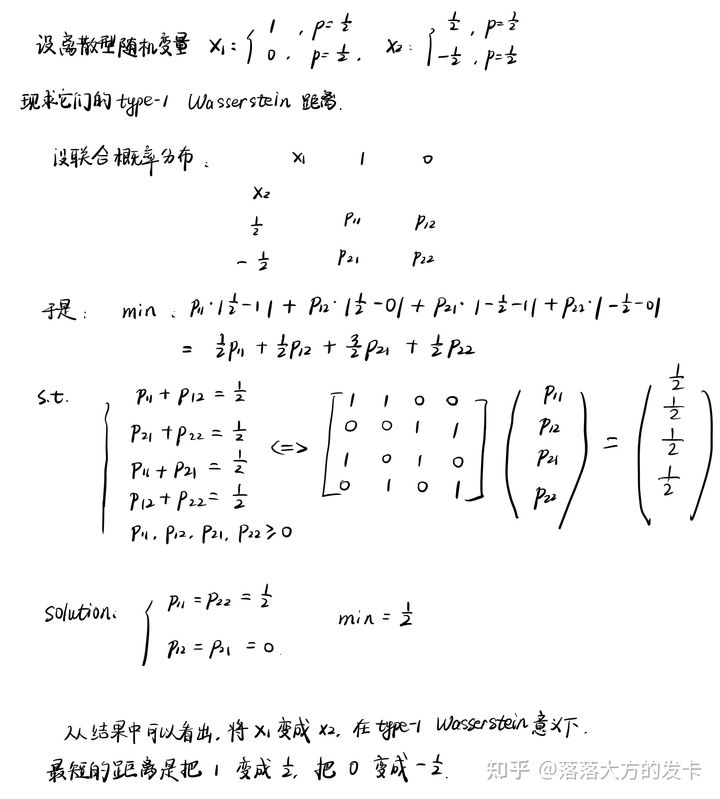 设离散型随机变量 X₁: { 1, p=1/2 ; 0, p=1/2. X₂: { 1/2, p=1/2 ; -1/2, p=1/2
现求它们的type-1 Wasserstein 距离.
设联合概率分布:
X₁ 1 0
X₂
1/2 P₁₁ P₁₂
-1/2 P₂₁ P₂₂
于是: min: P₁₁·|1/2-1| + P₁₂·|1/2-0| + P₂₁·|-1/2-1| + P₂₂·|-1/2-0|
= 1/2P₁₁ + 1/2P₁₂ + 3/2P₂₁ + 1/2P₂₂
s.t. { P₁₁+P₁₂=1/2
P₂₁+P₂₂=1/2
P₁₁+P₂₁=1/2
P₁₂+P₂₂=1/2
P₁₁, P₁₂, P₂₁, P₂₂≥0
<=> [ 1 1 0 0
0 0 1 1
1 0 1 0
0 1 0 1 ] ( P₁₁
P₁₂
P₂₁
P₂₂ ) = ( 1/2
1/2
1/2
1/2 )
solution: { P₁₁=P₂₂=1/2 min=1/2
P₁₂=P₂₁=0.
从结果中可以看出,将X₁变成X₂,在type-1 Wasserstein意义下.
最短的距离是把 1 变成 1/2,把 0 变成 -1/2.
知乎 @落落大方的发卡